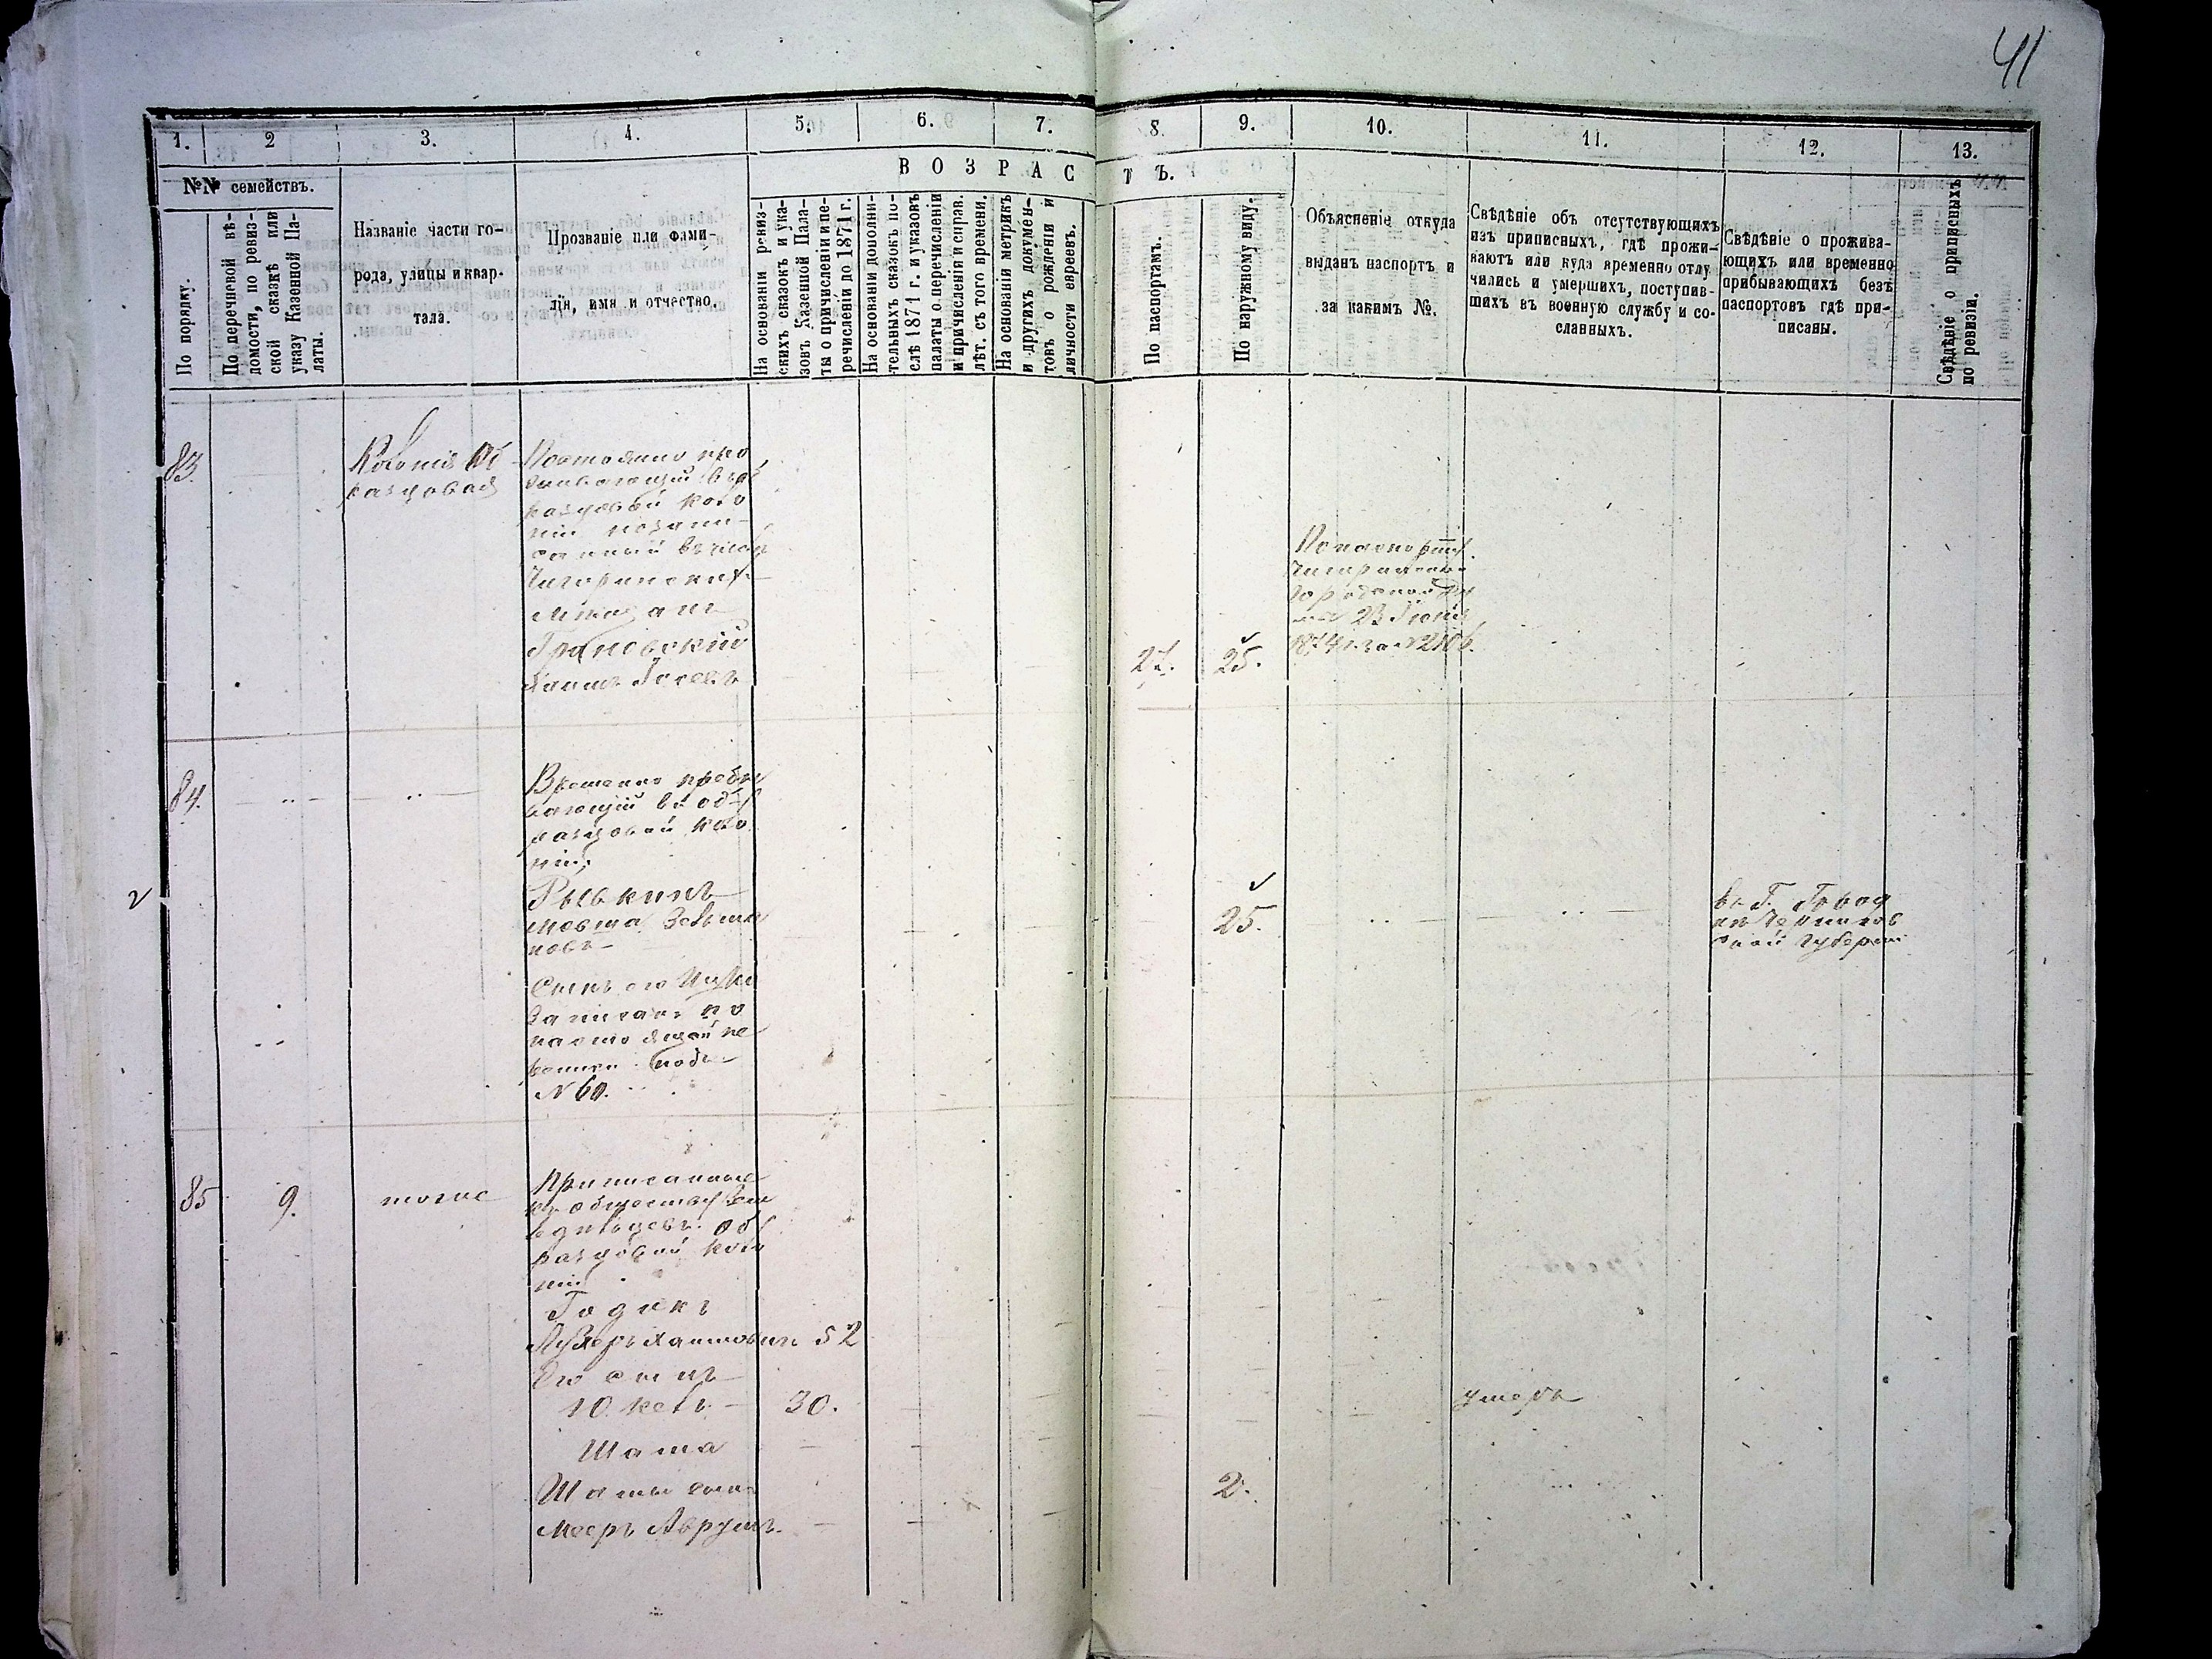 41
1. 2 3. 4. 5. 6. 7. 8. 9. 10. 11. 12. 13.
№№ семействъ.
По порядку.
По перечневой вѣ-
домости, по ревиз-
ской сказкѣ или
указу Казенной Па-
латы.
Названіе части го-
рода, улицы и квар-
тала.
Прозваніе или фами-
лія, имя и отчество.
ВОЗРАСТЪ.
На основаніи ревиз-
скихъ сказокъ и ука-
зовъ Казенной Пала-
ты о причисленіи и пе-
речисленіи по 1871 г.
На основаніи дополни-
тельныхъ сказокъ по-
слѣ 1871 г. и указовъ
палаты о перечисленіи
и причисленіи и справ.
лѣт. съ того времени.
На основаніи метрикъ
и другихъ докумен-
товъ о рожденіи и
личности евреевъ.
По паспортамъ.
По наружному виду.
Объясненіе откуда
выданъ паспортъ и
за какимъ №.
Свѣдѣніе объ отсутствующихъ
изъ приписныхъ, гдѣ прожи-
ваютъ или куда временно отлу
чились и умершихъ, поступив-
шихъ въ военную службу и со-
сланныхъ.
Свѣдѣніе о прожива-
ющихъ или временно
прибывающихъ безъ
паспортовъ гдѣ при-
писаны.
Свѣдѣніе о приписныхъ
по ревизіи.
83.
Колонія Об
разцовая
Постоянно про
живающій въ об
разцовой коло
ніи
санный въ
Чигиринских
мѣщанъ
Грановскій
Хаимъ
27. 25.
По паспорту
Чигиринской
Городской
23 Іюня
1874 г. за № 2106.
84.
Временно пребы
вающій въ об
разцовой коло
ніи,
Рывкинъ
Мовша
новъ
25.
въ Г. Город
нѣ Чернигов
ской Губерніи
Сынъ его Ицко
записанъ по
настоящей ре
подъ
№ 60.
85 9. тоже
Приписанные
къ обществу Зем
ледѣльцевъ Об
разцовой коло
ніи
Годикъ
Лузеръ Хаимовичъ 52
Его сынъ
Юкель 30. умеръ
Шама
Шамы сынъ 2.
Мееръ Аврумъ.